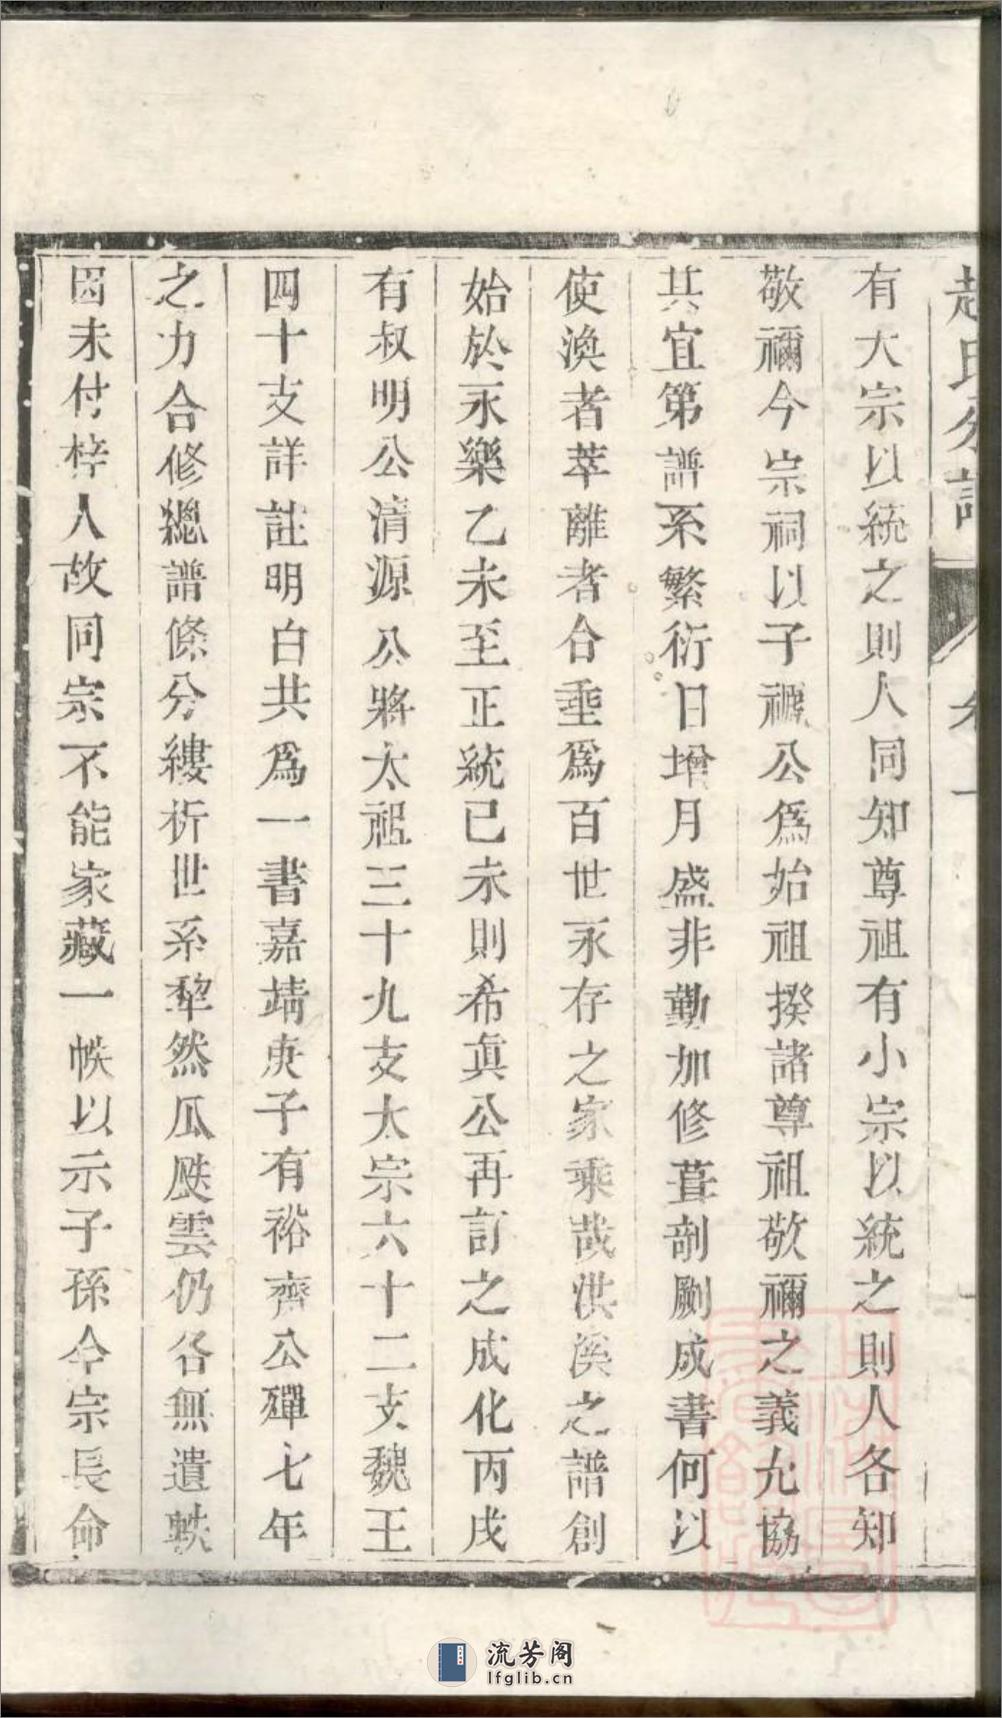 趙氏分譜
卷一
有大宗以統之則人同知尊祖有小宗以統之則人各知
敬禰今宗祠以子禠公爲始祖揆諸尊祖敬禰之義允協
其宜第譜系繁衍日增月盛非勤加修葺剞劂成書何以
使渙者萃離者合垂爲百世永存之家乘哉洪溪之譜創
始於永樂乙未至正統已未則希眞公再訂之成化丙戌
有叔明公清源公將太祖三十九支太宗六十二支魏王
四十支詳註明白共爲一書嘉靖庚子有裕齊公殫七年
之力合修總譜條分縷析世系犂然瓜瓞雲仍各無遺軼
因未付梓人故同宗不能家藏一帙以示子孫今宗長命
流芳阁
lfglib.cn